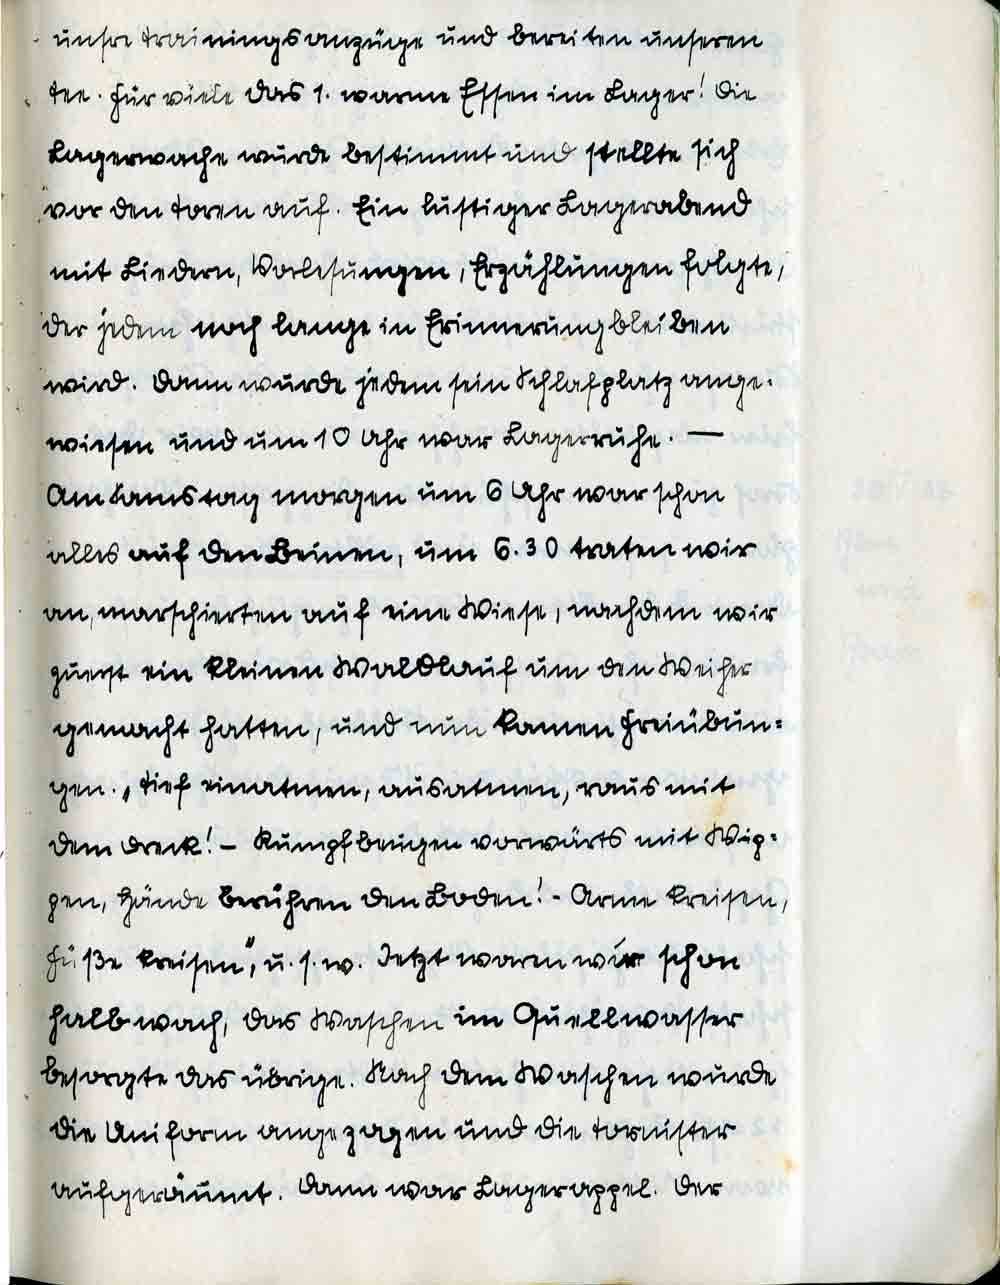 unsre Trainingsanzüge und bereiten unseren
Tee. Für viele das 1. warme Essen im Lager! Die
Lagerwache wurde bestimmt und stellte sich
vor den Toren auf. Ein lustiger Lagerabend
mit Liedern, Vorlesungen, Erzählungen folgte,
der jedem noch lange in Erinnerung bleiben
wird. Dann wurde jedem sein Schlafplatz ange-
wiesen und um 10 Uhr war Lagerruhe. —
Am Samstag morgen um 6 Uhr war schon
alles auf den Beinen, um 6.30 traten wir
an, marschierten auf eine Wiese, nachdem wir
zuerst ein kleinen Waldlauf um den Weiher
gemacht hatten, und nun kamen Freiübun=
gen. „Tief einatmen, ausatmen, raus mit
dem Dreck! – Rumpfbeugen vorwärts mit Wip=
pen, Hände berühren den Boden! - Arme kreisen,
Füße kreisen", u. s. w. Jetzt waren wir schon
halb wach, das Waschen im Quellwasser
besorgte das übrige. Nach dem Waschen wurde
die Uniform angezogen und die Tornister
aufgeräumt. Dann war Lagerappel. Der